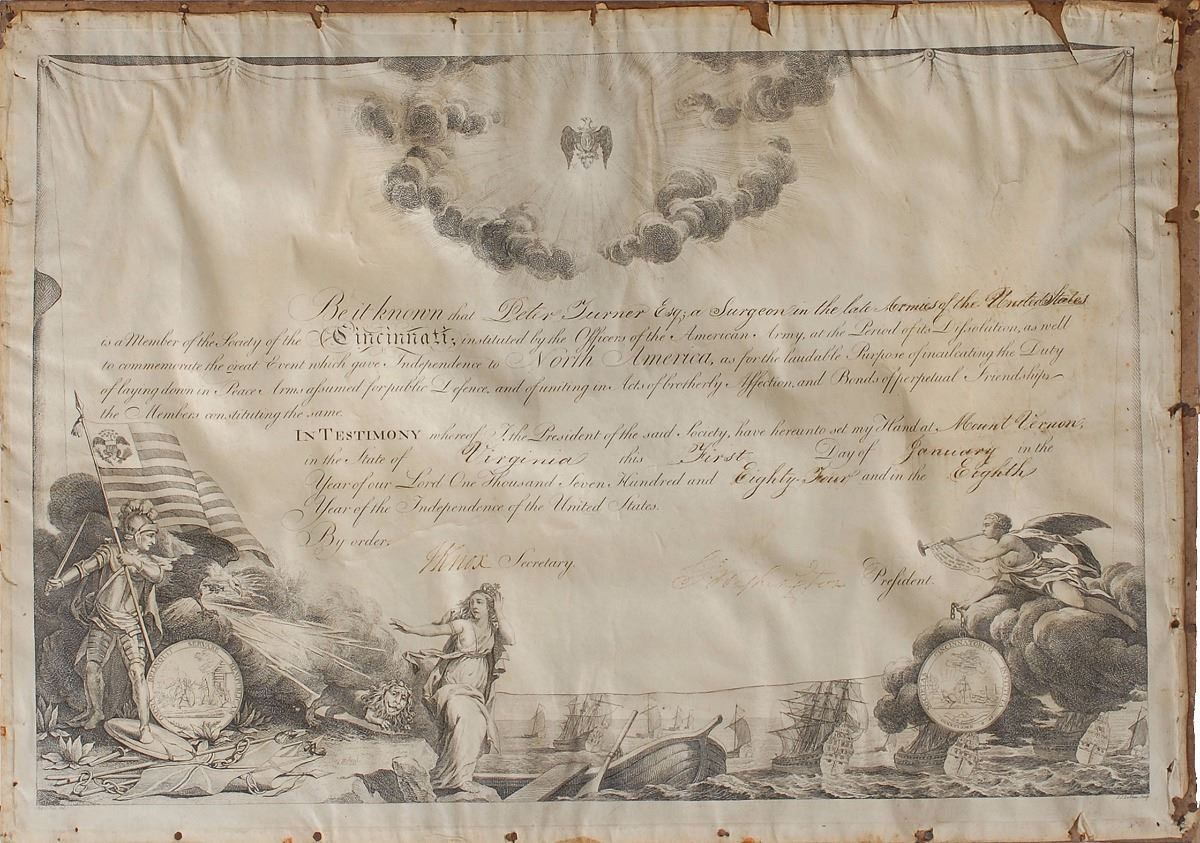 Be it known that Peter Turner Esq; a Surgeon in the late Armies of the United States
is a Member of the Society of the Cincinnati; instituted by the Officers of the American Army, at the Period of its Dissolution, as well
to commemorate the great Event which gave Independence to North America, as for the laudable Purpose of inculcating the Duty
of laying down in Peace Arms assumed for public Defence, and of uniting in Acts of brotherly Affection, and Bonds of perpetual Friendship
the Members constituting the same.
IN TESTIMONY whereof I, the President of the said Society, have hereunto set my Hand at Mount Vernon,
in the State of Virginia this First Day of January in the
Year of our Lord One Thousand Seven Hundred and Eighty Four and in the Eighth
Year of the Independence of the United States.
By order,
HKnox Secretary.
President.
SERVARE